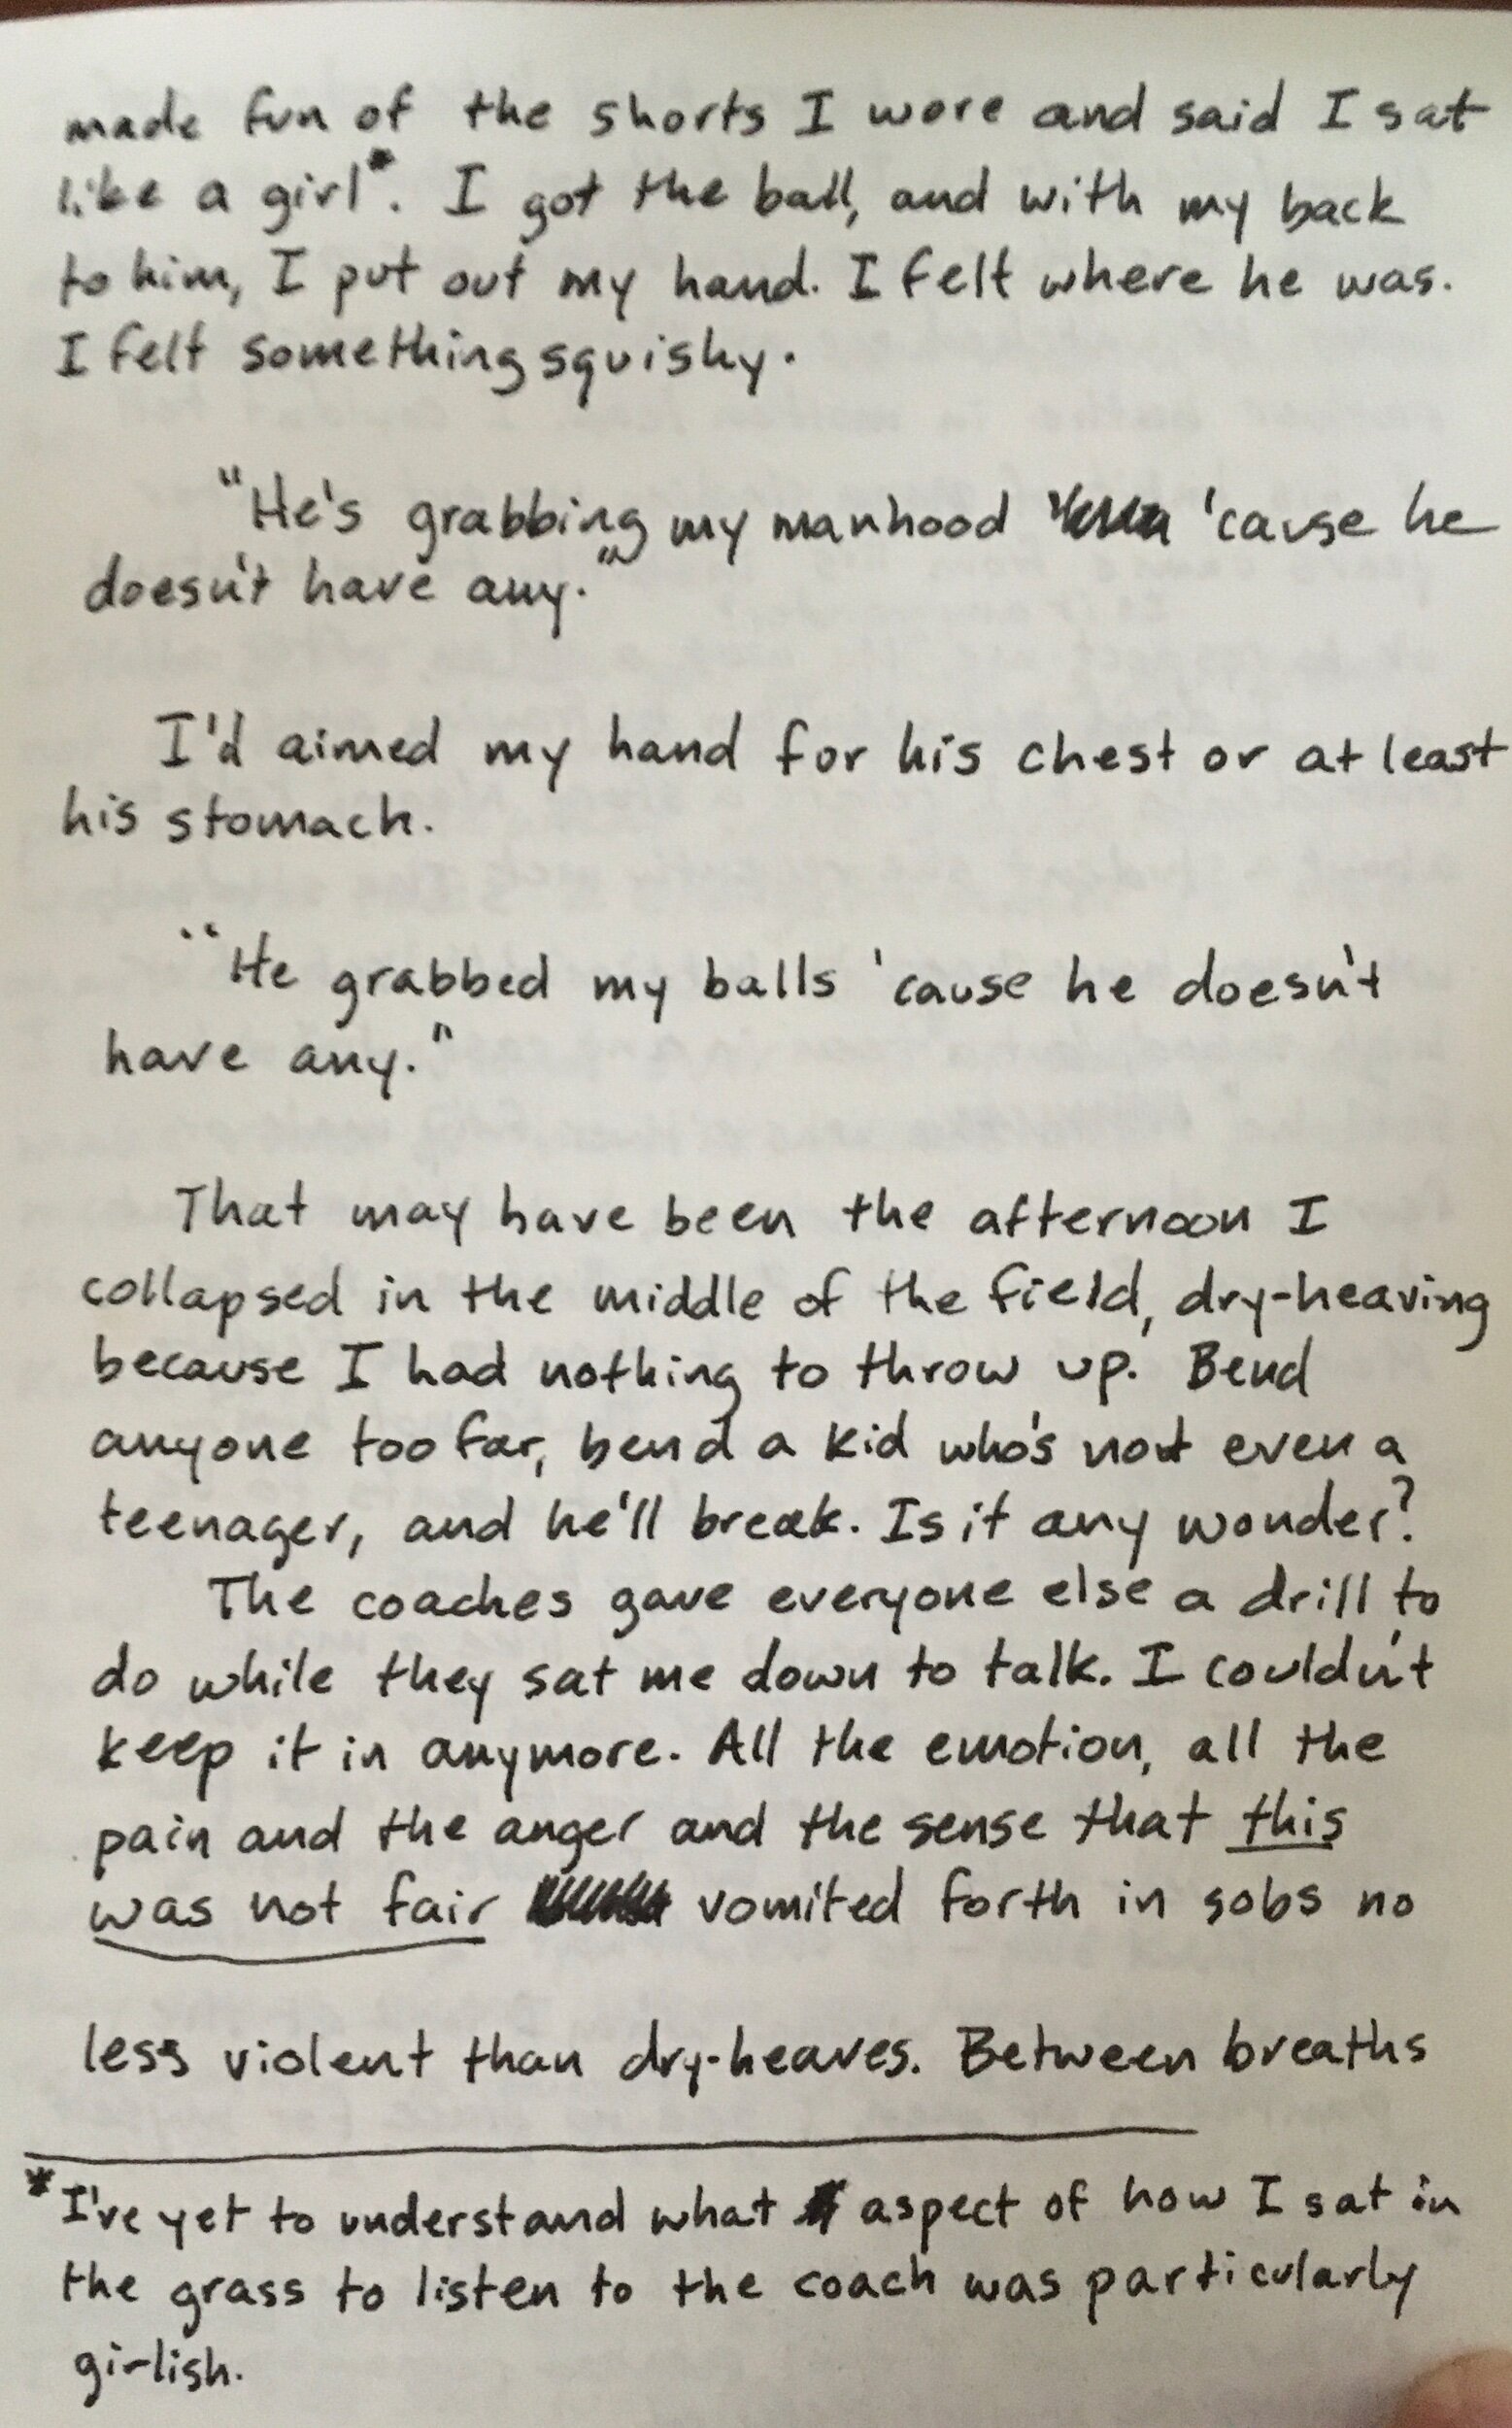 made fun of the shorts I wore and said I sat
like a girl*. I got the ball, and with my back
to him, I put out my hand. I felt where he was.
I felt something squishy.
"He's grabbing my manhood 'cause he
doesn't have any."
I'd aimed my hand for his chest or at least
his stomach.
"He grabbed my balls 'cause he doesn't
have any."
That may have been the afternoon I
collapsed in the middle of the field, dry-heaving
because I had nothing to throw up. Bend
anyone too far, bend a kid who's not even a
teenager, and he'll break. Is it any wonder?
The coaches gave everyone else a drill to
do while they sat me down to talk. I couldn't
keep it in anymore. All the emotion, all the
pain and the anger and the sense that this
was not fair vomited forth in sobs no
less violent than dry-heaves. Between breaths
*I've yet to understand what aspect of how I sat in
the grass to listen to the coach was particularly
girlish.